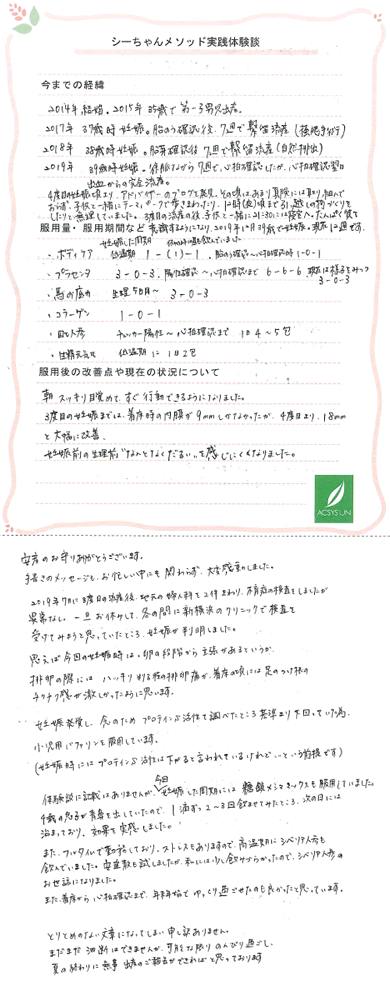 シーちゃんメソッド実践体験談
今までの経緯
2014年結婚。2015年35歳で第一子男児出産。
2017年 37歳時妊娠。胎のう確認後、7週で繋留流産(掻爬手術)
2018年 38歳時妊娠。胎芽確認後 7週で繋留流産(自然排出)
2019年 39歳時妊娠。 7週で、心拍確認したが、心拍確認翌日
出血からの完全流産。
4度目の妊娠 アドバイザーのブログを発見。その頃はあまり真剣には取り組んで
おらず、子供と一緒に 12時(夜)頃まで
したりと無理していました。3度目の流産の後、子供と一緒に21:30には寝る たんぱく質を
服用量・服用期間など 意識するようになり、2019年10月39歳で妊娠。現在12週です。
妊娠した周期
・ボディケア 低温期 1-(1)-1、胎のう確認〜心拍確認時 1-0-1
・プラセンタ 3-0-3、陽性確認〜心拍確認まで 6-6-6 現在は様子をみつつ
3-0-3
・馬の 生理5日目〜 3-0-3
・コラーゲン 1-0-1
・田七人参 チェッカー陽性〜心拍確認まで 1日4〜5包
・ 低温期に 1日2包
服用後の改善点や現在の状況について
朝スッキリ目覚めて、すぐ行動できるようになりました。
3度目の妊娠までは、着床時の内膜が9mmしかなかったが、4度目より、18mm
と大幅に改善。
妊娠前の生理前“なんとなくだるい”を感じにくくなりました。
ACSYSUN
安産のお守りありがとうございます。
手書きのメッセージも、お忙しい中にも関わらず、大変感動しました。
2019年7月に3度目の流産後、地元の婦人科を2件まわり、不育症の検査をしましたが
異常なし。一旦お休みして、冬の間に新横浜のクリニックで検査を
受けてみようと思っていたところ、妊娠が判明しました。
思えば今回の妊娠時は、卵の段階から主張があるというか、
排卵の際には ハッキリ 排卵痛が、着床の頃には足のつけ根の
チクチク感が激しかったように思います。
妊娠発覚し、念のため プロテインS活性を調べたところ基準より下回っていた為、
小児用バファリンを服用しています。
(妊娠時には プロテインS活性は下がると言われているけれど…という前提です)
体験談に記載はありませんが、今回妊娠した周期には 糖鎖 も服用していました。
4歳の息子が鼻血を出していたので、1滴ずつ2〜3回飲ませてみたところ、次の日には
治まっており、効果を実感しました。
また、フルタイムで勤務しており、ストレスもありますので、高温期にシベリア人参も
飲んでいました。 も試しましたが、私には少し飲みづらかったので、シベリア人参の
お世話になりました。
また、着床から心拍確認まで、年末年始でゆっくり過ごせたのも良かったと思っています。
とりとめのない文章になってしまい申し訳ありません。
まだまだ油断はできませんが、可能な限りのんびり過ごし、
夏の終わりに無事出産のご報告ができればと思っております